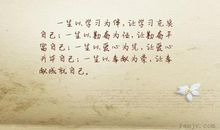 一生以学习为伴，让学习充实
自己；一生以勤奋为伍，让勤奋丰
富自己；一生以爱心为光，让爱心
升华自己；一生以奉献为荣，让奉
献成就自己。